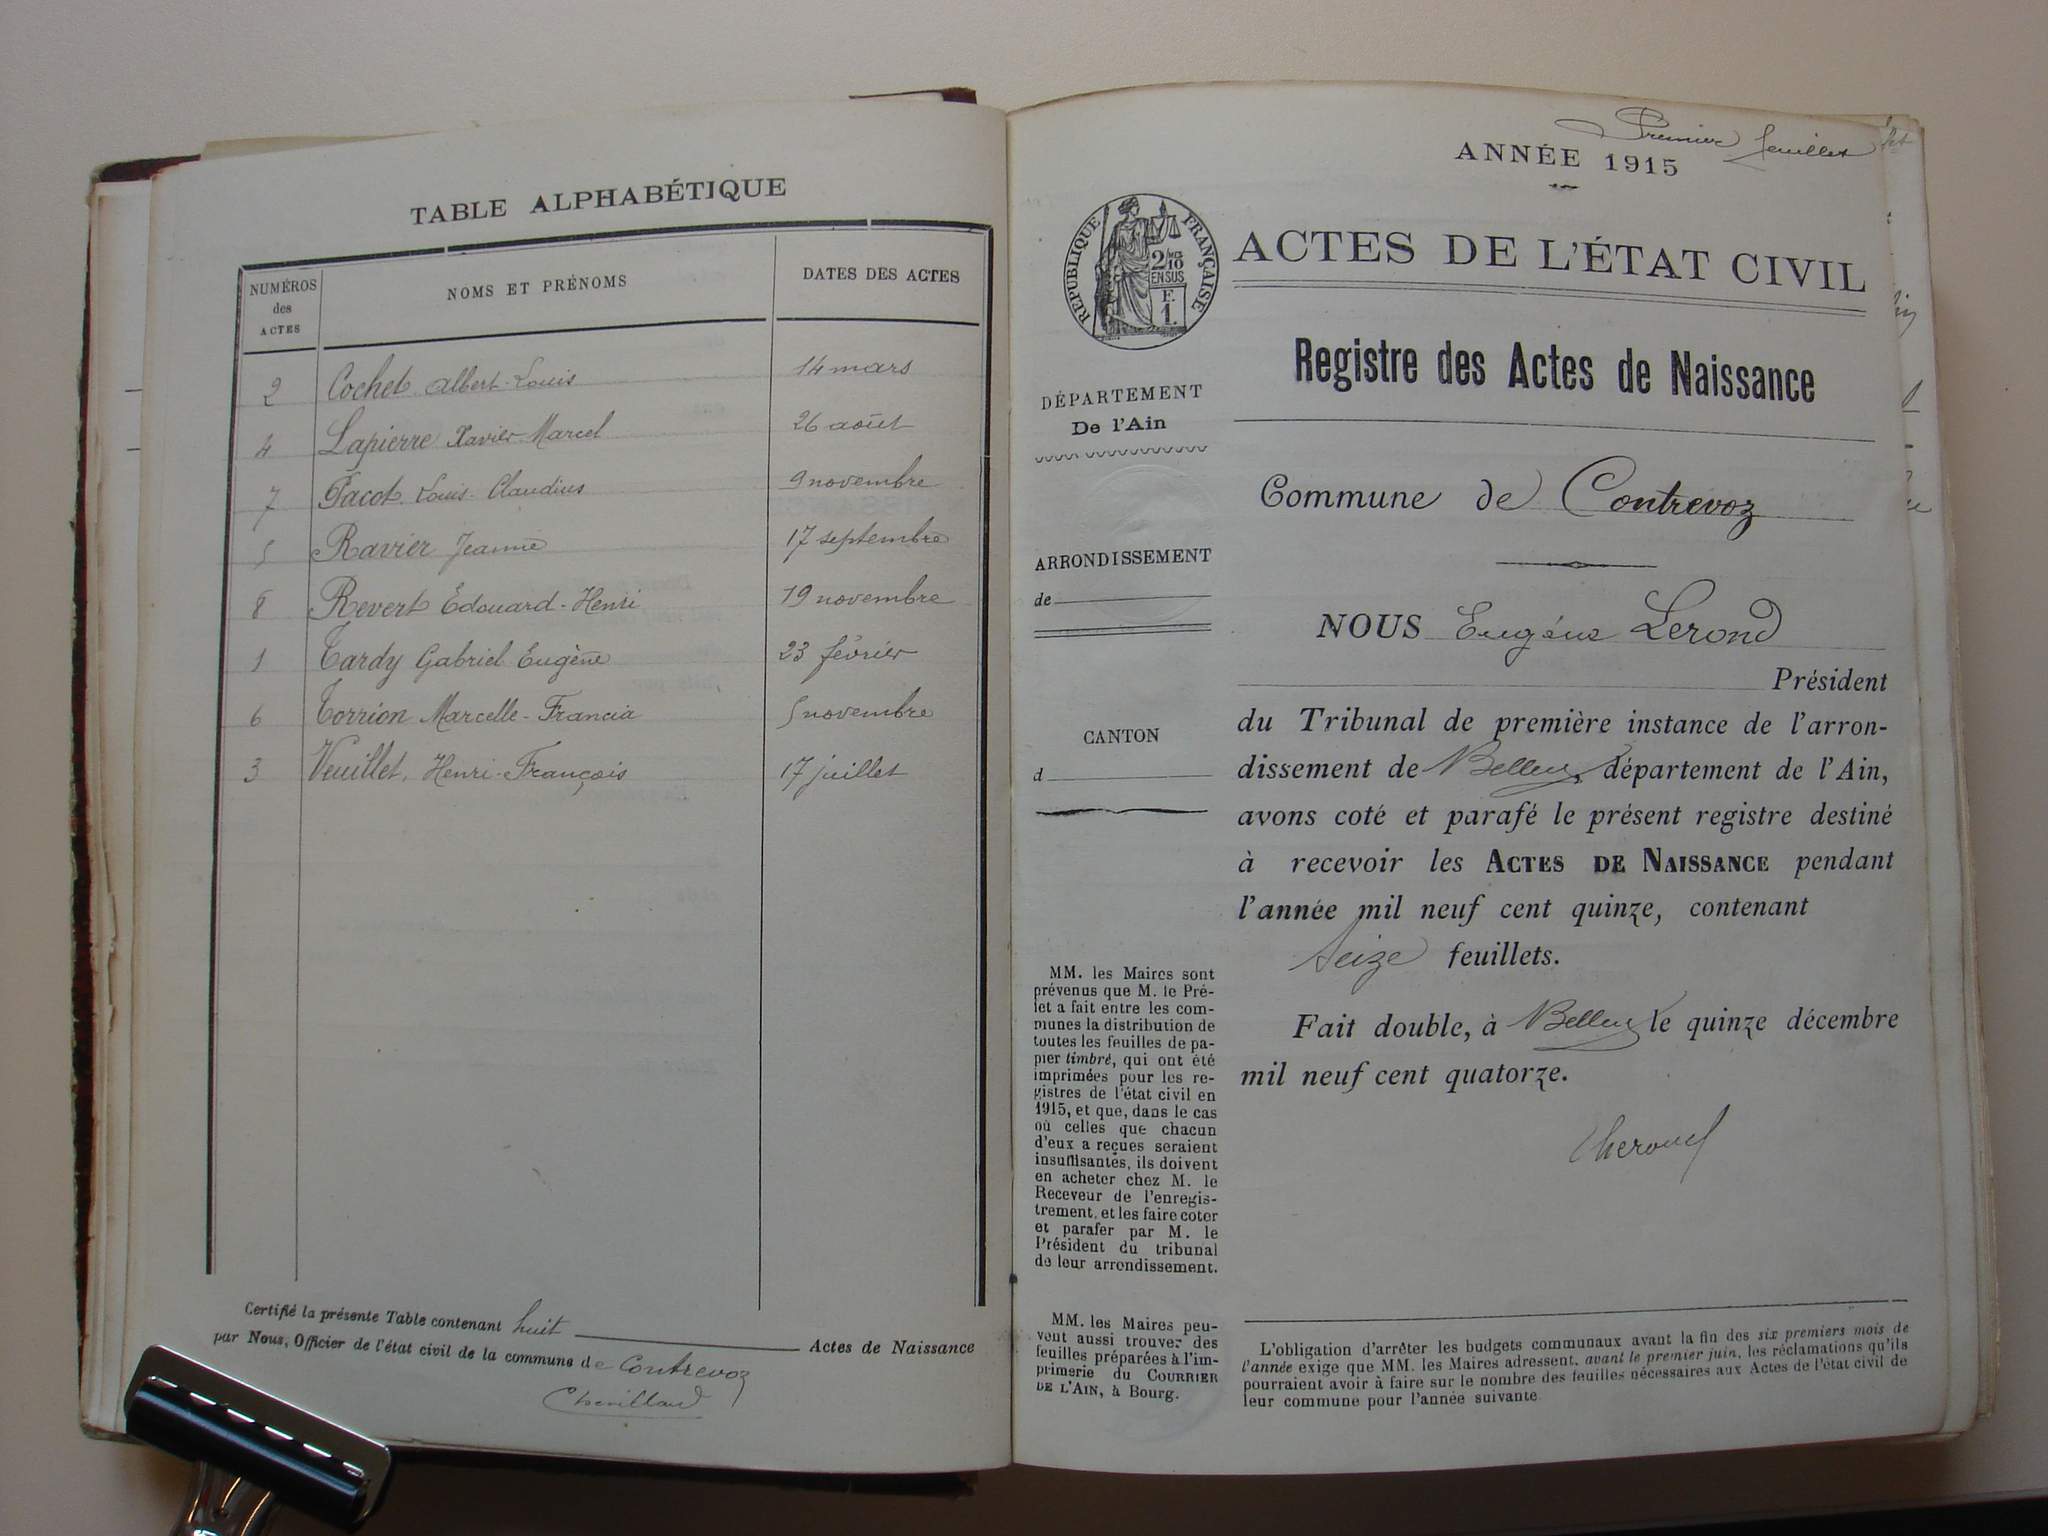 TABLE ALPHABÉTIQUE
NUMÉROS des ACTES
NOMS ET PRÉNOMS
DATES DES ACTES
2 Cochet Albert-Louis 14 mars
4 Lapierre Xavier-Marcel 26 août
7 Pacot Louis-Claudius 9 novembre
5 Ravier Jeanne 17 septembre
8 Revert Édouard-Henri 19 novembre
1 Tardy Gabriel Eugène 23 février
6 Torrion Marcelle-Francia 5 novembre
3 Veuillet, Henri-François 17 juillet
Certifié la présente Table contenant huit Actes de Naissance
par Nous, Officier de l'état civil de la commune de Contrevoz
Premier feuillet
ANNÉE 1915
RÉPUBLIQUE FRANÇAISE
2/10
EN SUS
F.
1.
ACTES DE L'ÉTAT CIVIL
Registre des Actes de Naissance
DÉPARTEMENT
De l'Ain
Commune de Contrevoz
ARRONDISSEMENT
de
CANTON
d
NOUS Eugène Lerond
Président
du Tribunal de première instance de l'arron-
dissement de Belley, département de l'Ain,
avons coté et parafé le présent registre destiné
à recevoir les ACTES DE NAISSANCE pendant
l'année mil neuf cent quinze, contenant
seize feuillets.
Fait double, à Belley le quinze décembre
mil neuf cent quatorze.
MM. les Maires sont
prévenus que M. le Pré-
fet a fait entre les com-
munes la distribution de
toutes les feuilles de pa-
pier timbré, qui ont été
imprimées pour les re-
gistres de l'état civil en
1915, et que, dans le cas
où celles que chacun
d'eux a reçues seraient
insuffisantés, ils doivent
en acheter chez M. le
Receveur de l'enregis-
trement, et les faire coter
et parafer par M. le
Président du tribunal
de leur arrondissement.
MM. les Maires peu-
vent aussi trouver des
feuilles préparées à l'im-
primerie du COURRIER
DE L'AIN, à Bourg.
L'obligation d'arrêter les budgets communaux avant la fin des six premiers mois de
l'année exige que MM. les Maires adressent, avant le premier juin, les réclamations qu'ils
pourraient avoir à faire sur le nombre des feuilles nécessaires aux Actes de l'état civil de
leur commune pour l'année suivante